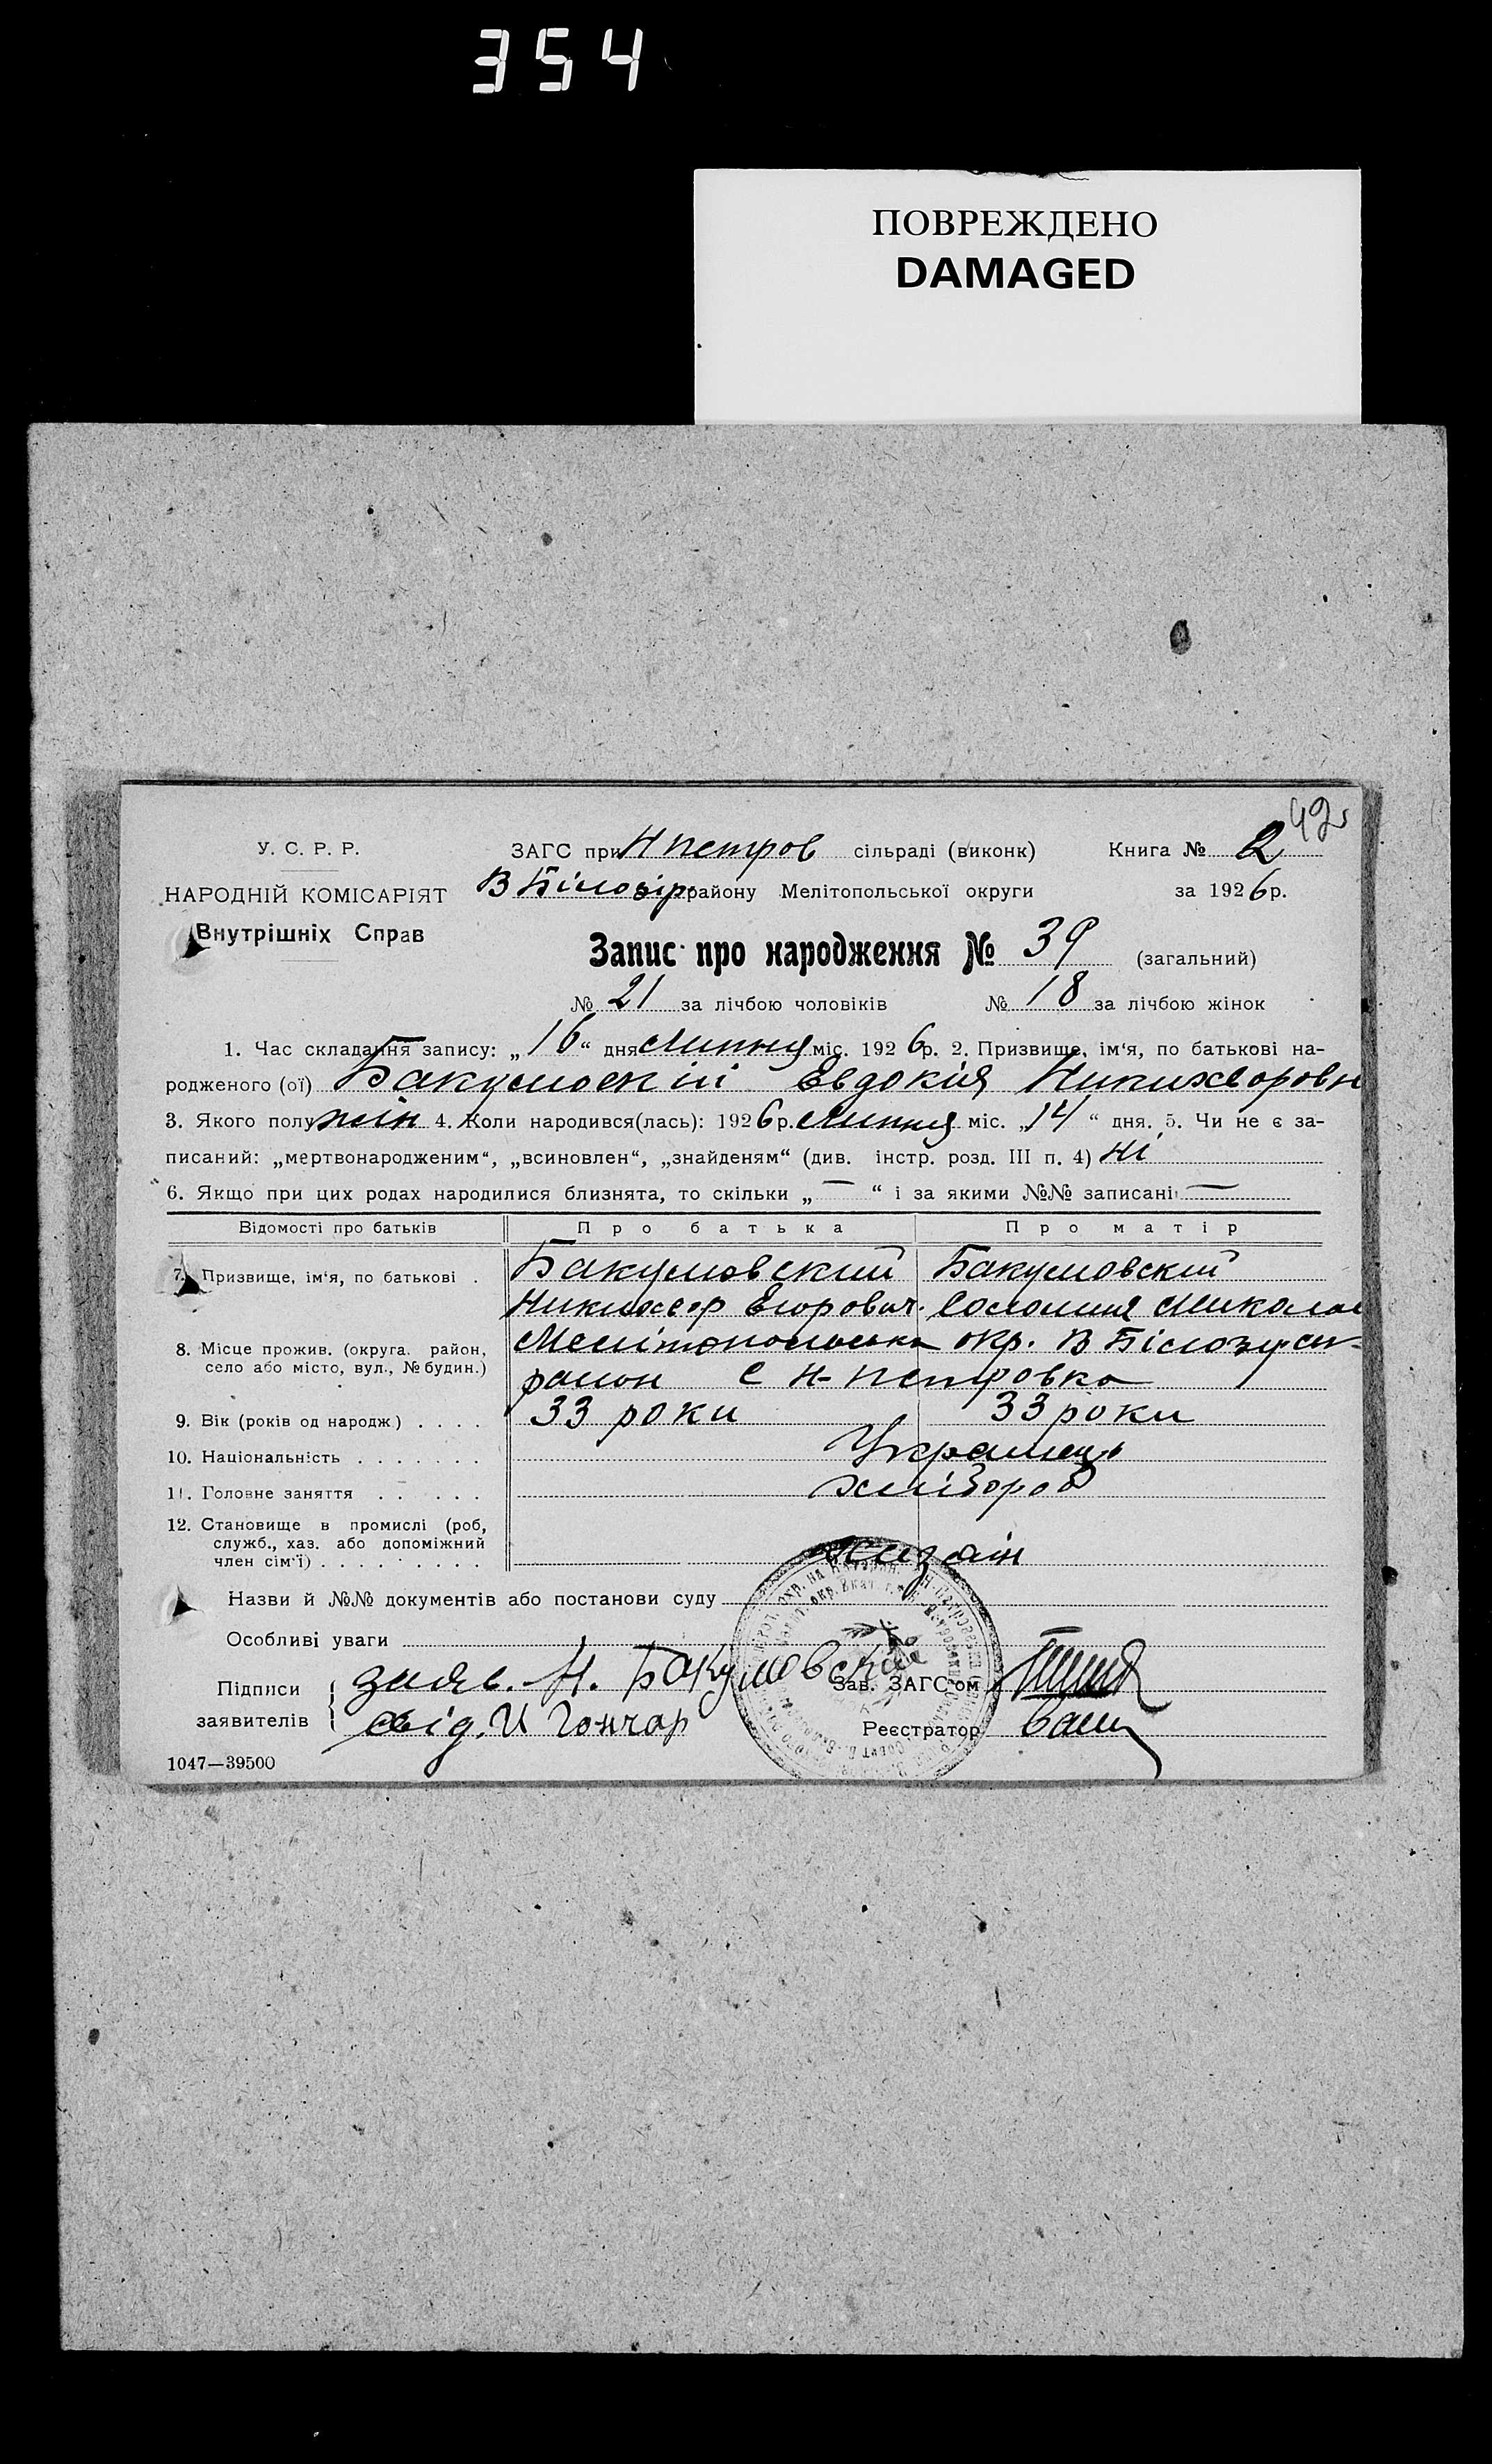 354
ПОВРЕЖДЕНО
DAMAGED
42
У. С. Р. Р.
ЗАГС при Н петров сільраді (виконк) Книга № 2
НАРОДНІЙ КОМІСАРІЯТ
В Білозір району Мелітопольської округи за 1926 р.
Внутрішніх Справ
Запис про народження № 39 (загальний)
№ 21 за лічбою чоловіків № 18 за лічбою жінок
1. Час складання запису: „16“ дня липня міс. 1926 р. 2. Призвище, ім‘я, по батькові на-
родженого (ої) Бакумовскій Евдокія Никихворовн
3. Якого полу жін 4. Коли народився(лась): 1926 р. липня міс. „14“ дня. 5. Чи не є за-
писаний: „мертвонародженим“, „всиновлен“, „знайденям“ (див. інстр. розд. III п. 4) Ні
6. Якщо при цих родах народилися близнята, то скільки „—“ і за якими №№ записані —
Відомості про батьків Про батька Про матір
7. Призвище, ім‘я, по батькові . Бакумовский Бакумовский
Никихвор Егорович. Соломия Микола
8. Місце прожив. (округа. район, село або місто, вул., № будин.) Мелітопольська окр. В Білозурск-
район с Н-петровка
9. Вік (років од народж) . . . . 33 роки 33 роки
10. Національність . . . . . . . Українець
11. Головне заняття . . . . . . хлібороб
12. Становище в промислі (роб,
служб., хаз. або допоміжний
член сім‘ї) . . . . . . . . . хазяін
Назви й №№ документів або постанови суду
Особливі уваги
Підписи заявителів
заяв. Н. Бакумовский
Зав. ЗАГС‘ом
свід. И Гончар
Реєстратор
1047—39500